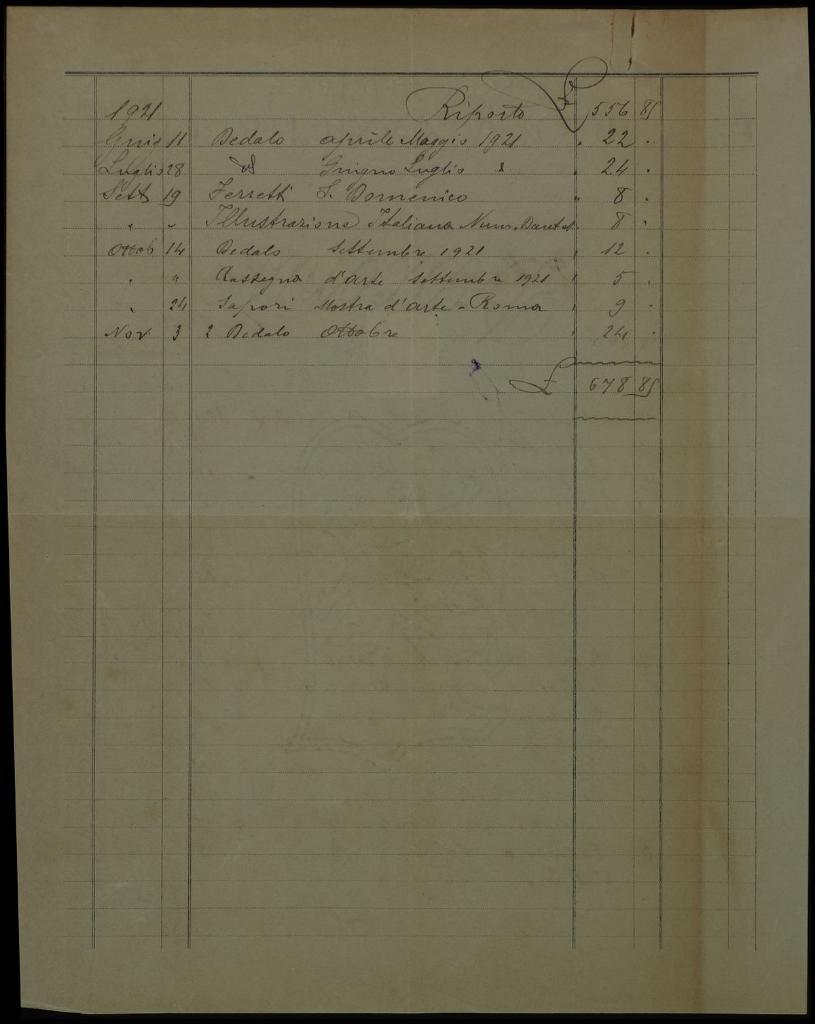 1921 Riporto £ 556 85
Giug 11 Dedalo aprile Maggio 1921 " 22 "
Luglio 28 id Giugno Luglio " " 24 "
Sett 19 Ferretti S. Domenico " 8 "
" " Illustrazione Italiana Num. " 8 "
Ottob 14 Dedalo Settembre 1921 " 12 "
" " Rassegna d'arte settembre 1921 " 5 "
" 24 Sapori Mostra d'arte - Roma " 9 "
Nov. 3 2 Dedalo Ottobre " 24 "
£ 678 85